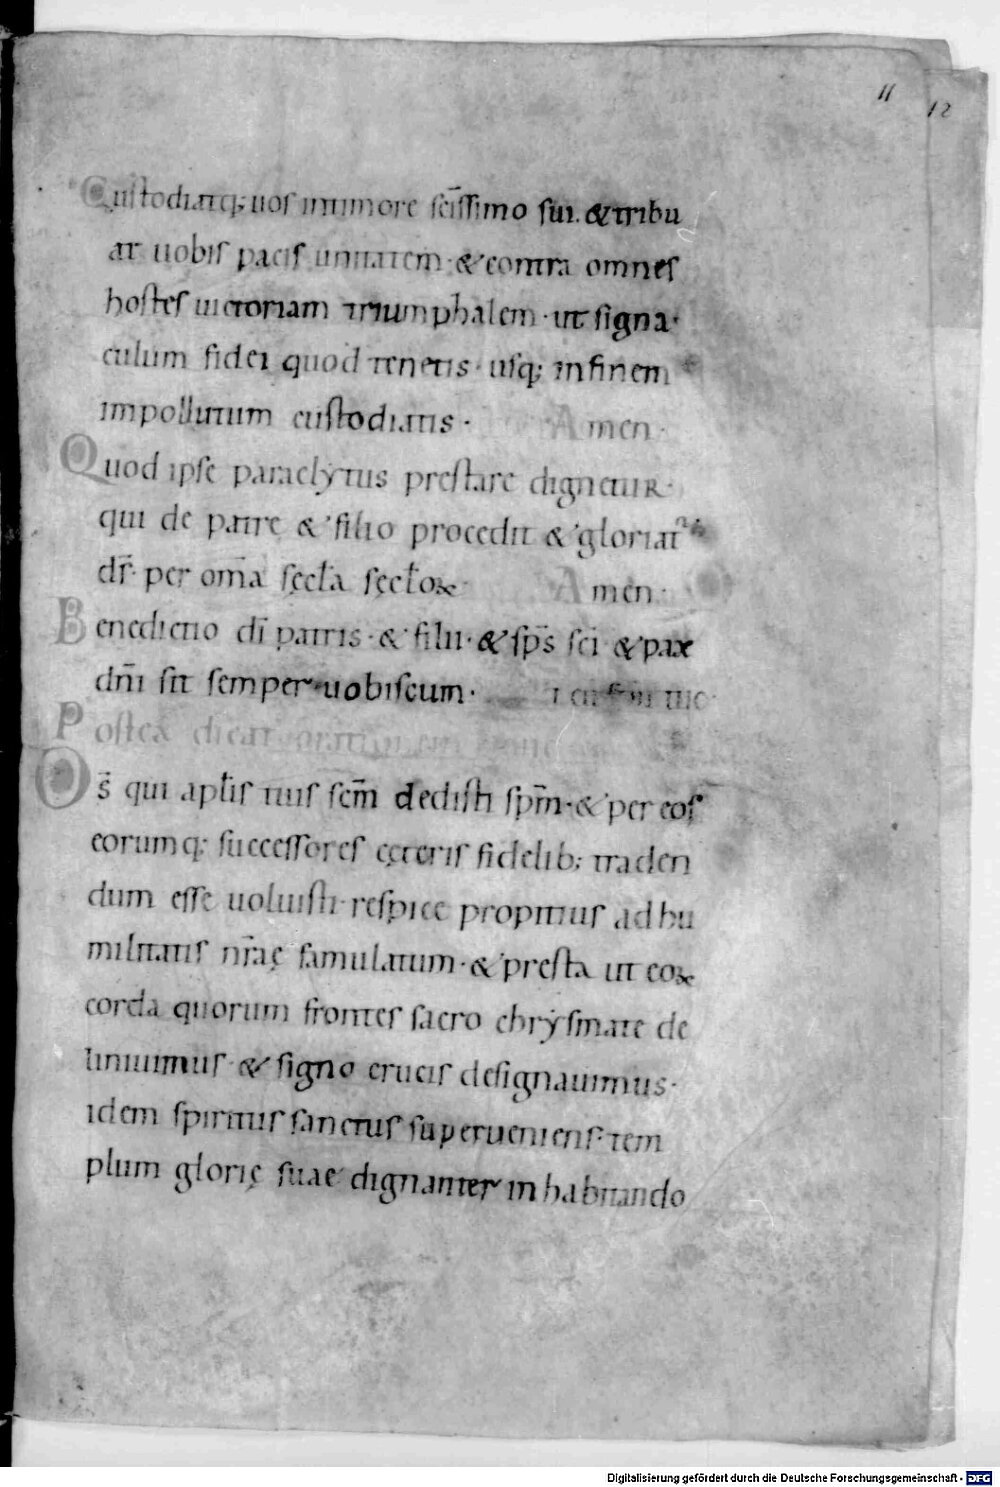 11
12
Custodiatq; uos in timore sc̄issimo sui. & tribu
at uobis pacis unitatem · & contra omnes
hostes uictoriam triumphalem · ut signa·
culum fidei quod tenetis · usq; in finem
impollutum custodiatis · Amen ·
Quod ipse paraclytus prestare dignetur ·
qui de patre & filio procedit & gloriat᷑
dſ̄ · per om̄a sęcl̄a sęcl̄oꝝ Amen ·
Benedictio dī patris · & filii · & sp̄s sc̄i & pax
dn̄i sit semper uobiscum ·
Postea dicat orationem
Ds̄ qui apl̄is tuis sc̄m dedisti sp̄m · & per eos
eorumq; successores cęteris fidelib; traden
dum esse uoluisti · respice propitius ad hu
militatis nr̄ae famulatum · & presta ut eoꝝ
corda quorum frontes sacro chrysmate de
liniuimus · & signo crucis designauimus ·
idem spiritus sanctus superueniens · tem
plum glorię suae dignanter inhabitando
Digitalisierung gefördert durch die Deutsche Forschungsgemeinschaft - DFG